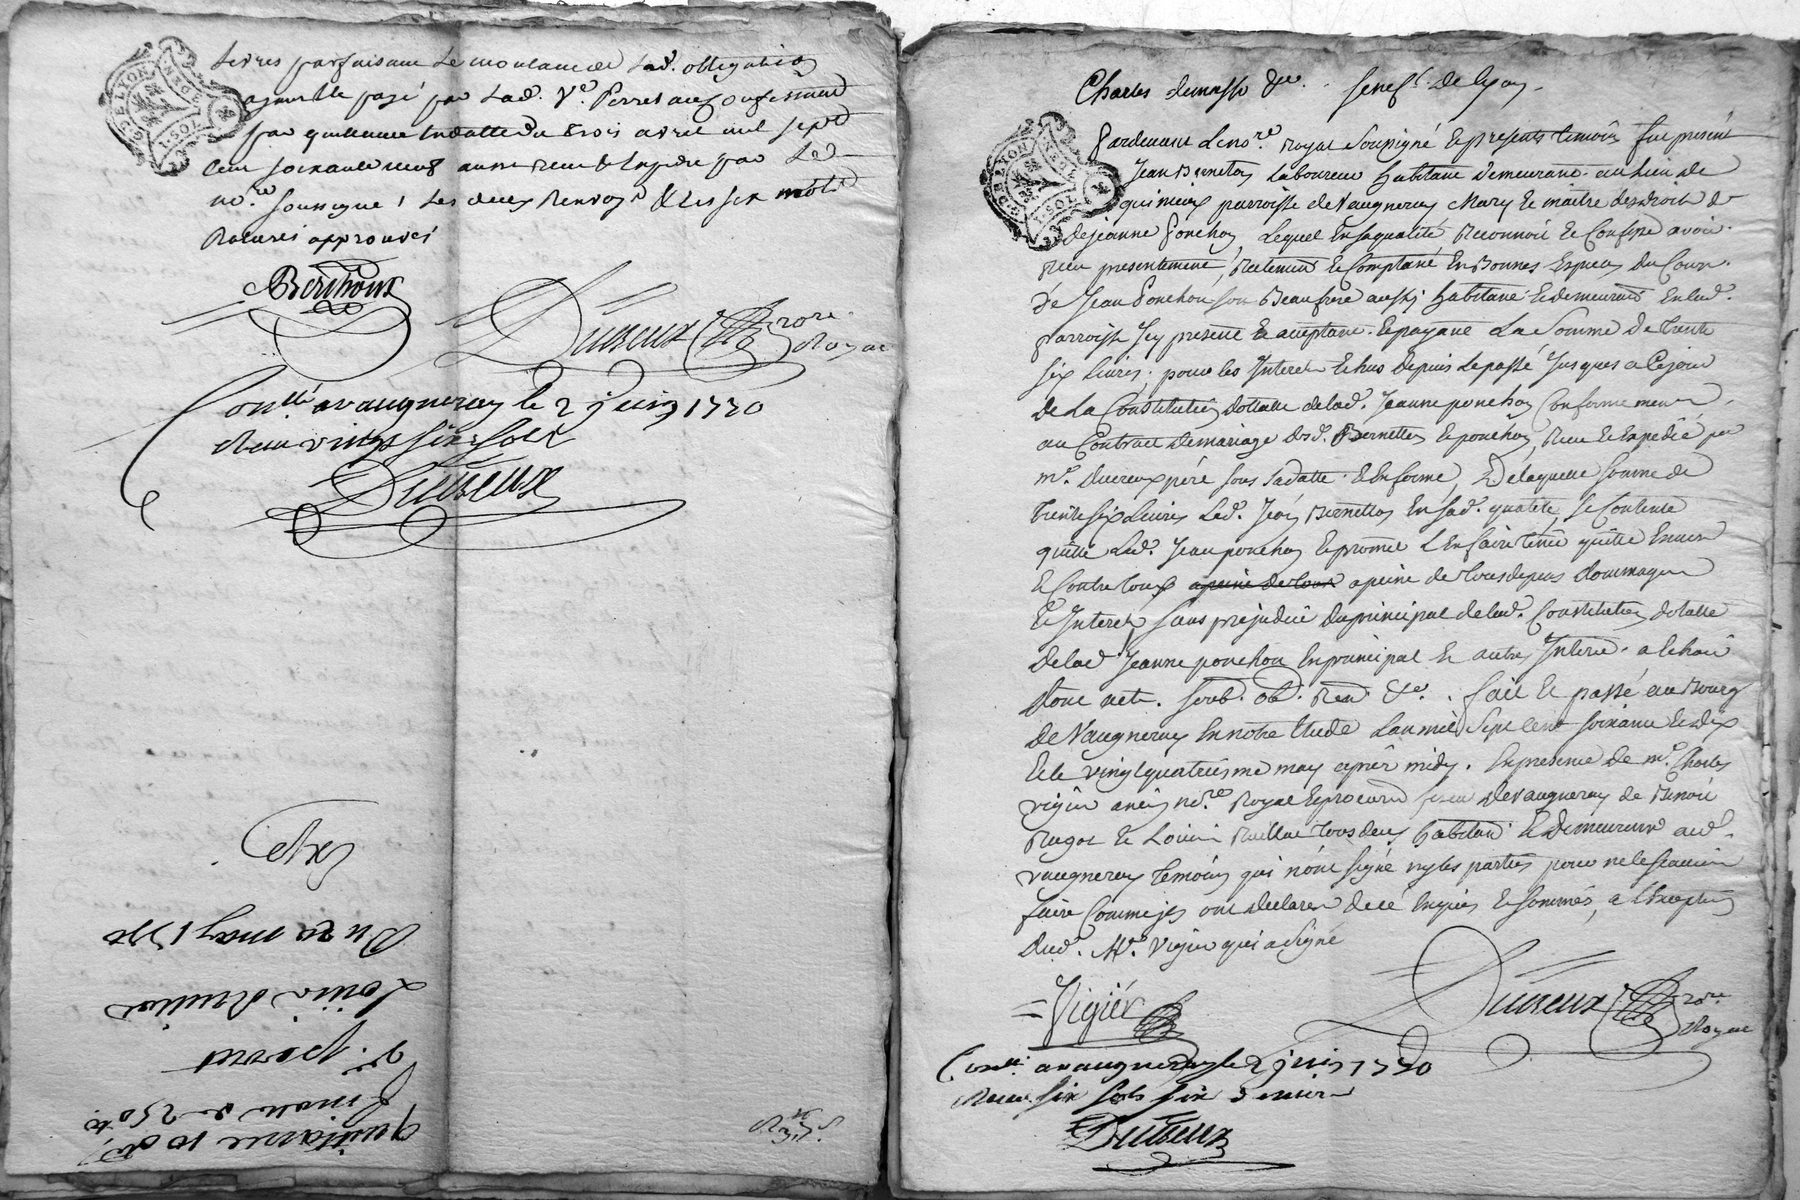 Livres parfaisant le montant de lad. obligation
aymable payé par lad. Ve. Perret aux
par quittance en datte du trois avril mil sept
cent soixante neuf aussi receu & expedié par led.
no.re soussigné, les deux renvoys & les six mots
rature's approuvés
Berthoux
Dutreux no.re Royal
Con.llé a vaugneray le 2 juin 1770
Reçu vingt six sols
Dutreux
Quittance
250
Ve. perret
Louis
Du 20 may 1770
Exp.
G. DE LYON
Charles demasso &c. Senes.l de Lyon.
Pardevant le no.re royal soussigné & presents temoins fut present
Jean Bernetton Laboureur habitant & demeurant au lieu de
paroisse de Vaugneray Mary & maitre des droits de
de jeanne Ponchon, Lequel en sa qualité, reconnoit & confesse avoir
reçu presentement, réelement & Comptant en Bonnes especes du Cours
de Jean Ponchon son Beaufrere aussi habitant & demeurant en lad.
parroisse Icy present & acceptant & payant la somme de trente
six livres, pour les Interets echus depuis le passé jusques a Cejour
de la Constitution dottalle de lad. Jeanne ponchon Conformement
au Contract de mariage desd. Bernetton & ponchon, Receu & Expedié par
m.e ducreux pére sous sa datte & en forme, De laquelle somme de
trente six Livres Led. Jean Bernetton en sad. qualité se Contente
quitte Led. Jean ponchon & promet l'en faire tenir quitte Envers
& Contre tous a peine de tous a peine de tous depens dommages
& Interets sans prejudice du principal de lad. Constitution dotalle
de lad. Jeanne ponchon en principal & autres Interets a echoir
dont acte. soub. ob. Ren. &c. fait & passé au Bourg
de Vaugneray en notre Etude L'an mil sept cent soixante & dix
& le vingt quatriesme may aprés midy. En presence de m.e Charles
Vigier ancien no.re Royal & procureur fiscal de vaugneray de Benoit
& Louis tous deux habitans & demeurants aud.
vaugneray temoins qui n'ont signé ny les parties pour ne le scavoir
faire Comme ils ont déclaré de ce Enquis & sommés, a l'Exception
dud. M.e Vigier qui a signé
Vigier
Dutreux no.re Royal
Con.llé a vaugneray le 2 juin 1770
Reçu six sols six deniers
Dutreux